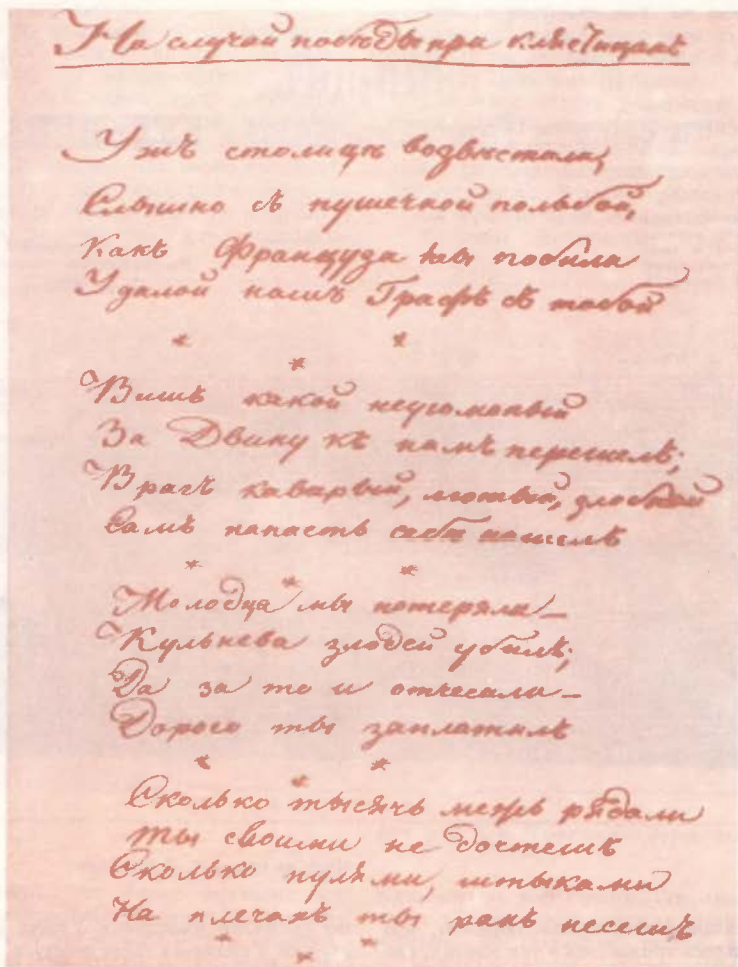 На случай победы при Клястицахъ
Ужъ столицѣ возвѣстили,
Слышно съ пушечной пальбой,
Какъ Француза мы побили
Удалой нашъ Графъ съ тобой
* * *
Вишь какой неугомонный
За Двину къ намъ перешелъ;
Врагъ коварный, лютый, злобной
Самъ напасть себѣ нашелъ
* * *
Молодца мы потеряли—
Кульнева злодей убилъ;
Да за то и отчесали—
Дорого ты заплатилъ
* * *
Сколько тысячь межь рядами
ты своими не дочтешь
Сколько пулями, штыками
На плечахъ ты ранъ несешь
* * *